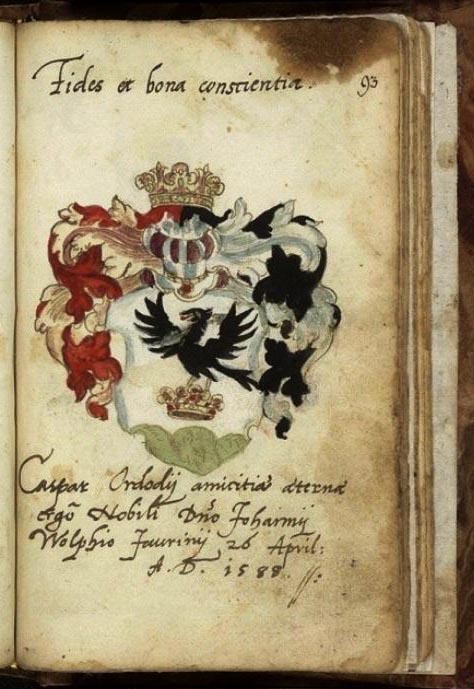 Fides et bona conscientia.
93
Caspar Ordodij amicitiæ æternæ
ergô Nobili Dnô Johannij
Wolphio Jaurinij 26 April:
A. D. 1588.